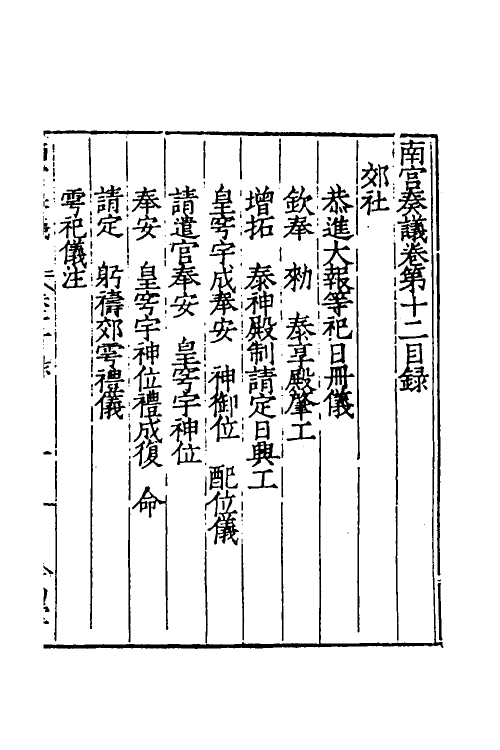 南宫奏議卷第十二目録
郊社
恭進大報等祀日冊儀
欽奉 勑 泰享殿肇工
增拓 泰神殿制請定日興工
皇穹宇成奉安 神御位 配位儀
請遣官奉安 皇穹宇神位
奉安 皇穹宇神位禮成復 命
請定 躬禱郊雩禮儀
雩祀儀注